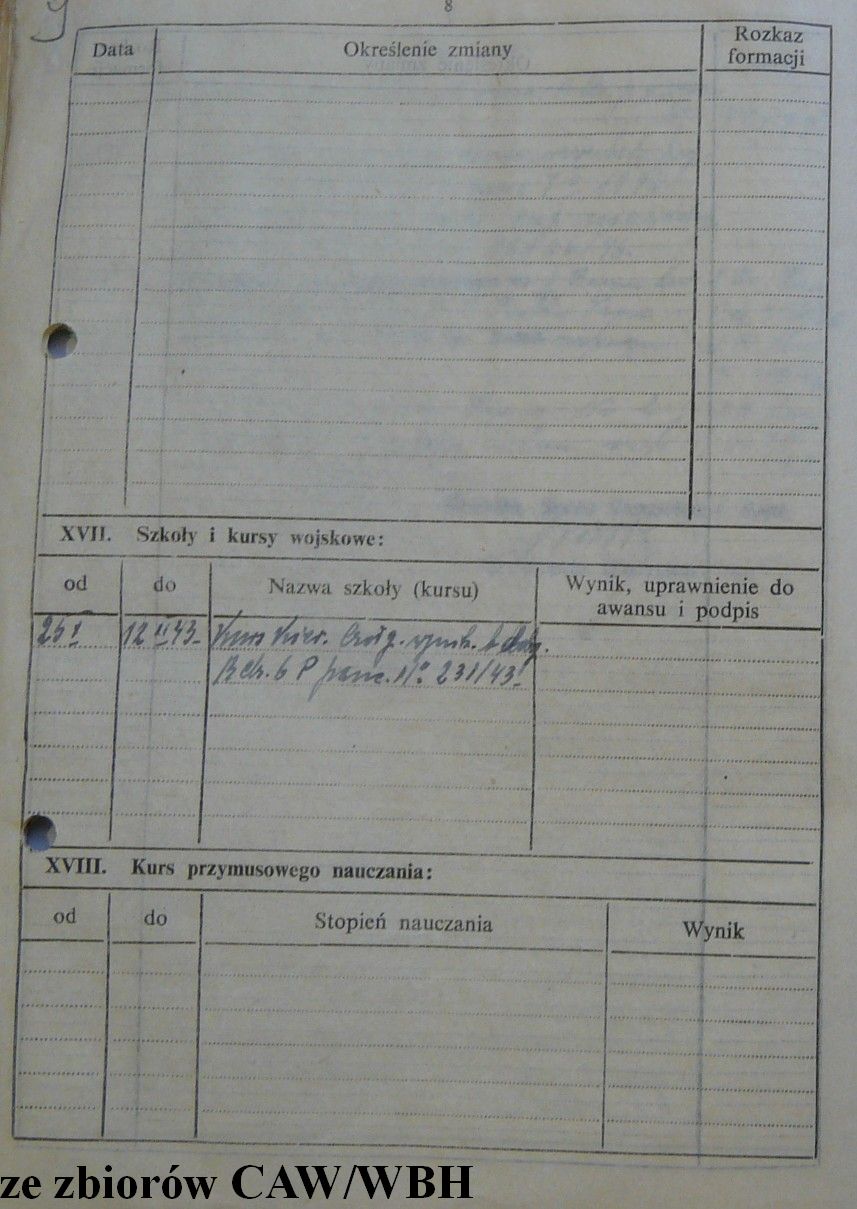 8
Data Określenie zmiany Rozkaz formacji
XVII. Szkoły i kursy wojskowe:
od do Nazwa szkoły (kursu) Wynik, uprawnienie do awansu i podpis
25 I 12 II 43. Kurs Kier.
6 P panc. No 231/43
XVIII. Kurs przymusowego nauczania:
od do Stopień nauczania Wynik
ze zbiorów CAW/WBH